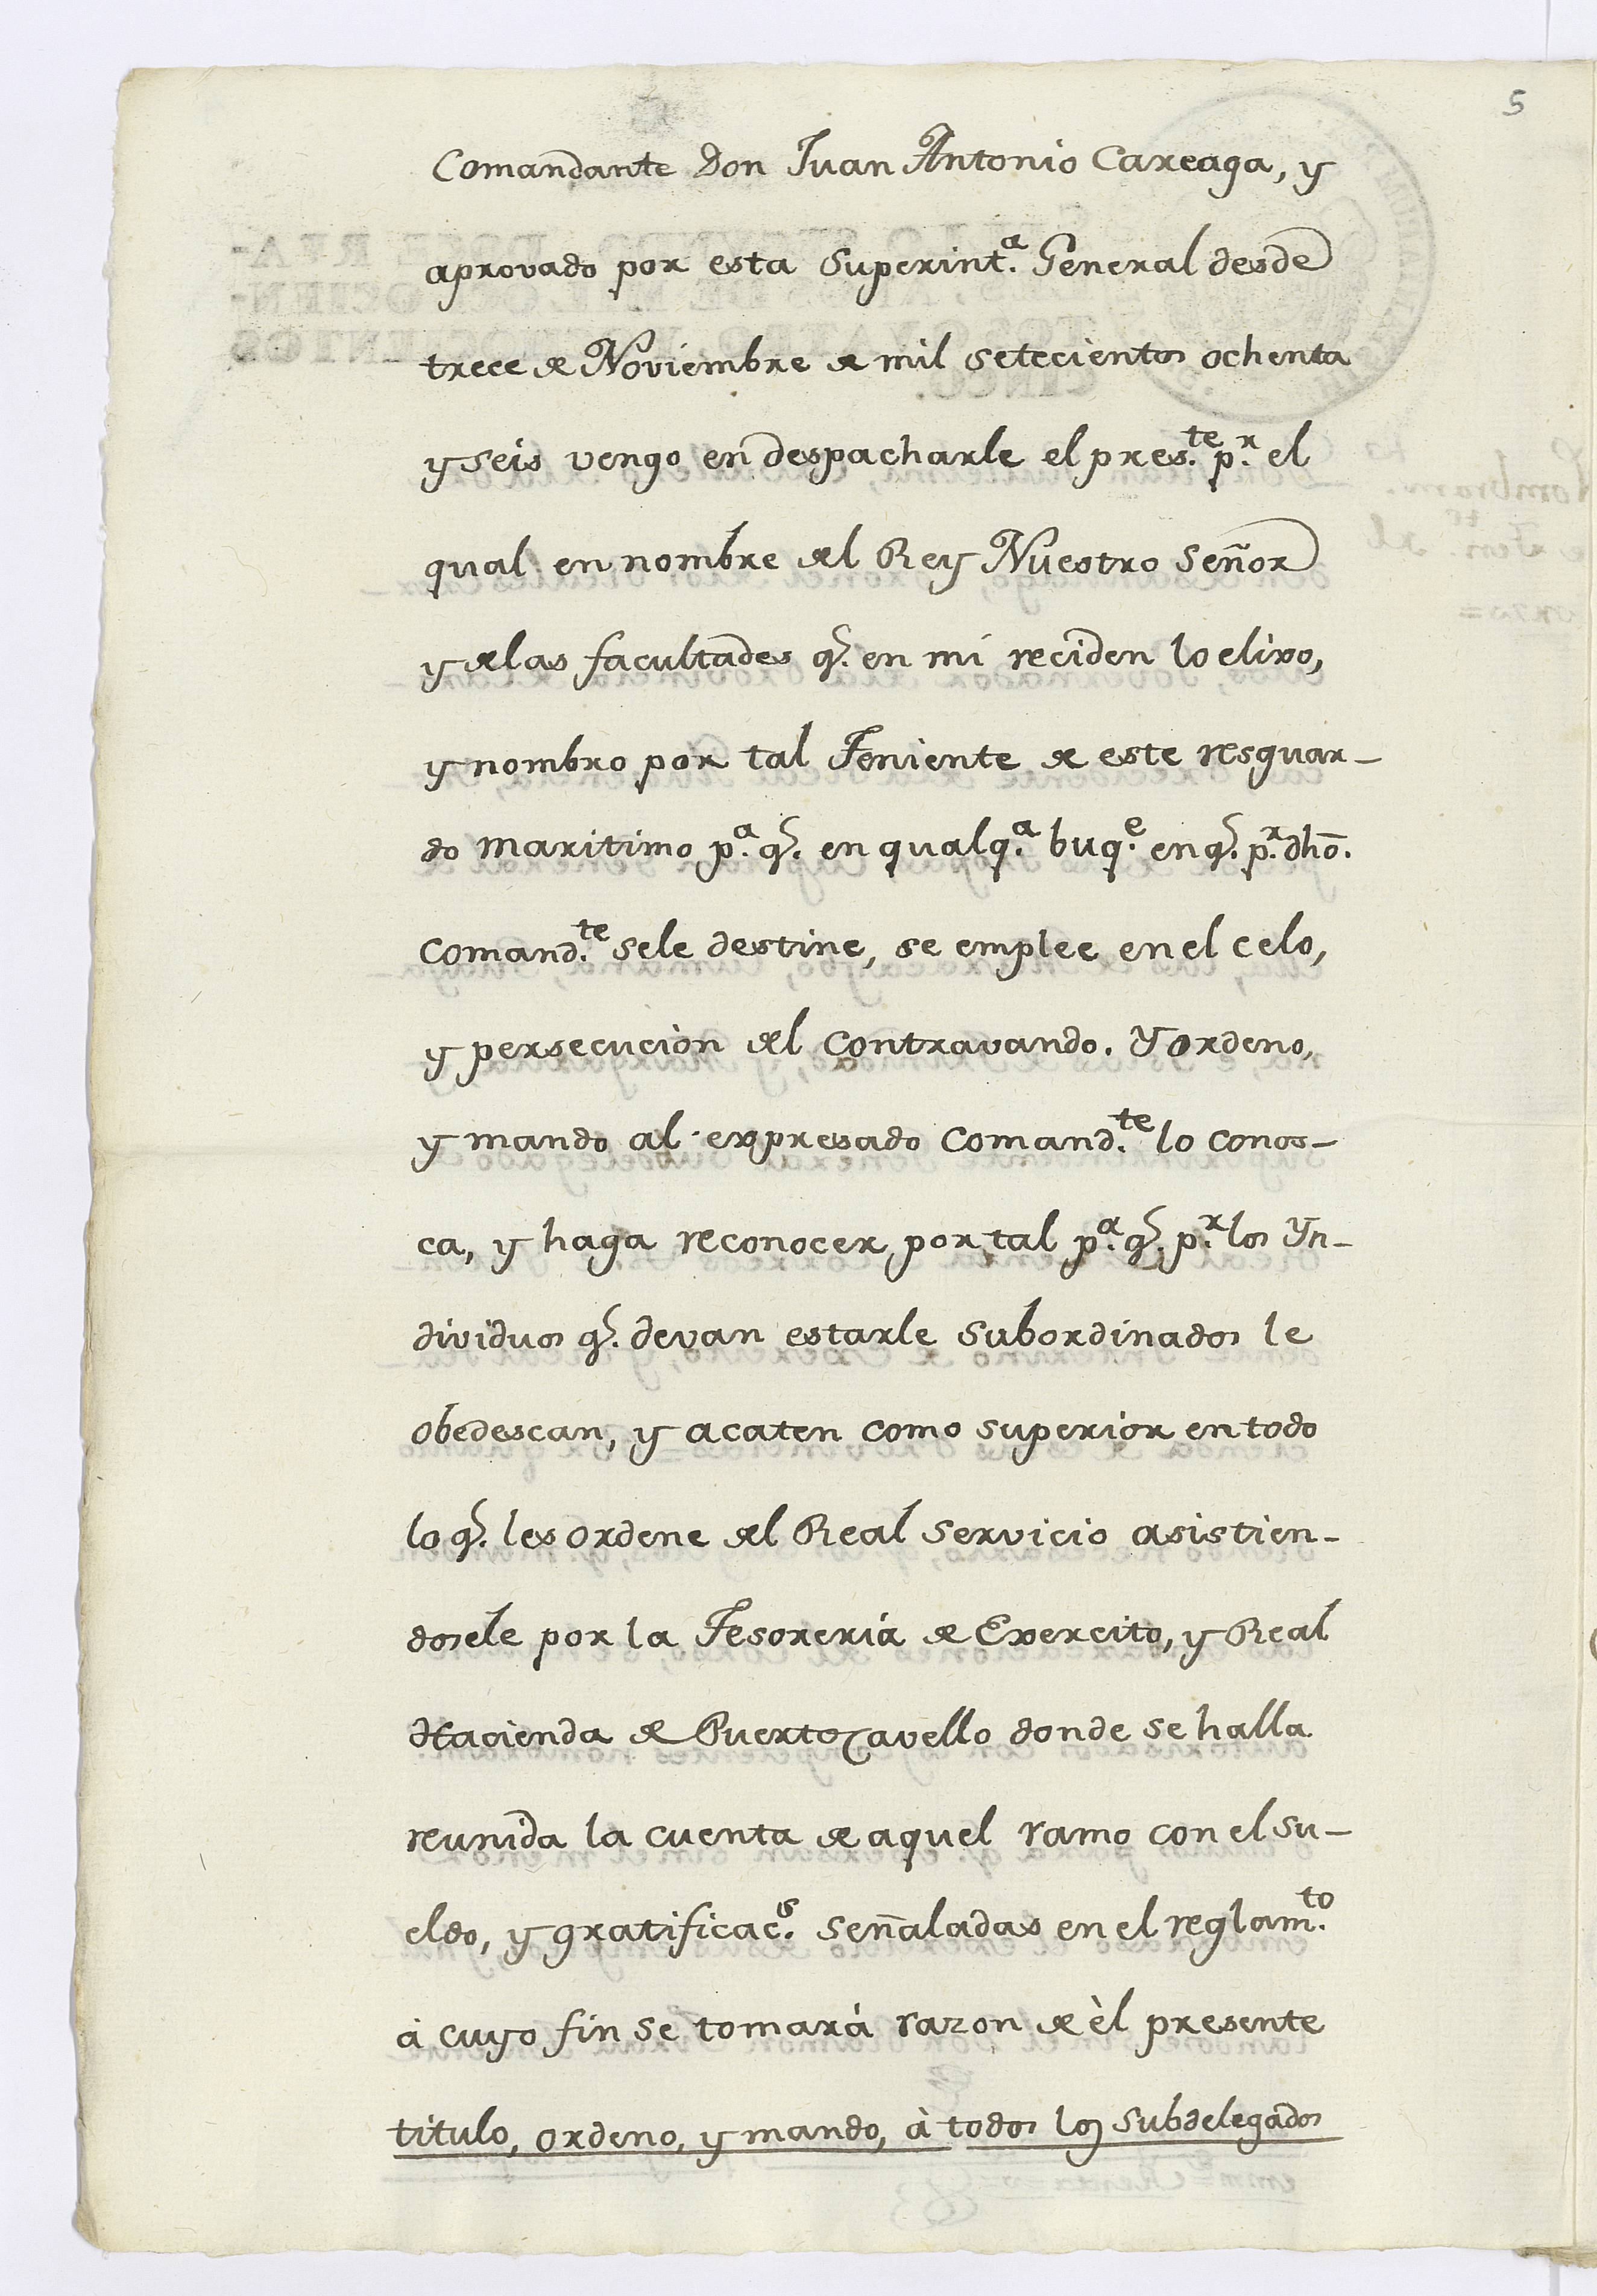 5
Comandante Don Juan Antonio Careaga, y
aprovado por esta Superint.ª General desde
trece de Noviembre de mil setecientos ochenta
y seis vengo en despacharle el pres.te p.r el
qual en nombre del Rey Nuestro Señor
y de las facultades q.e en mi reciden lo elixo,
y nombro por tal Teniente de este resguar-
do maritimo p.a q.e en qualq.a buq.e en q.e p.r dho.
Comand.te sele destine, se emplee en el celo,
y persecucion del contravando. Y ordeno,
y mando al expresado Comand.te lo conos-
ca, y haga reconocer por tal p.a q.e p.r los Yn-
dividuos q.e devan estarle subordinados le
obedescan, y acaten como superior en todo
lo q.e les ordene del Real servicio asistien-
dosele por la Tesoreria de Exercito, y Real
Hacienda de Puerto Cavello donde se halla
reunida la cuenta de aquel ramo con el su-
eldo, y gratificac.s señaladas en el reglam.to
à cuyo fin se tomará razon de èl presente
titulo, ordeno, y mando, à todos los subdelegados